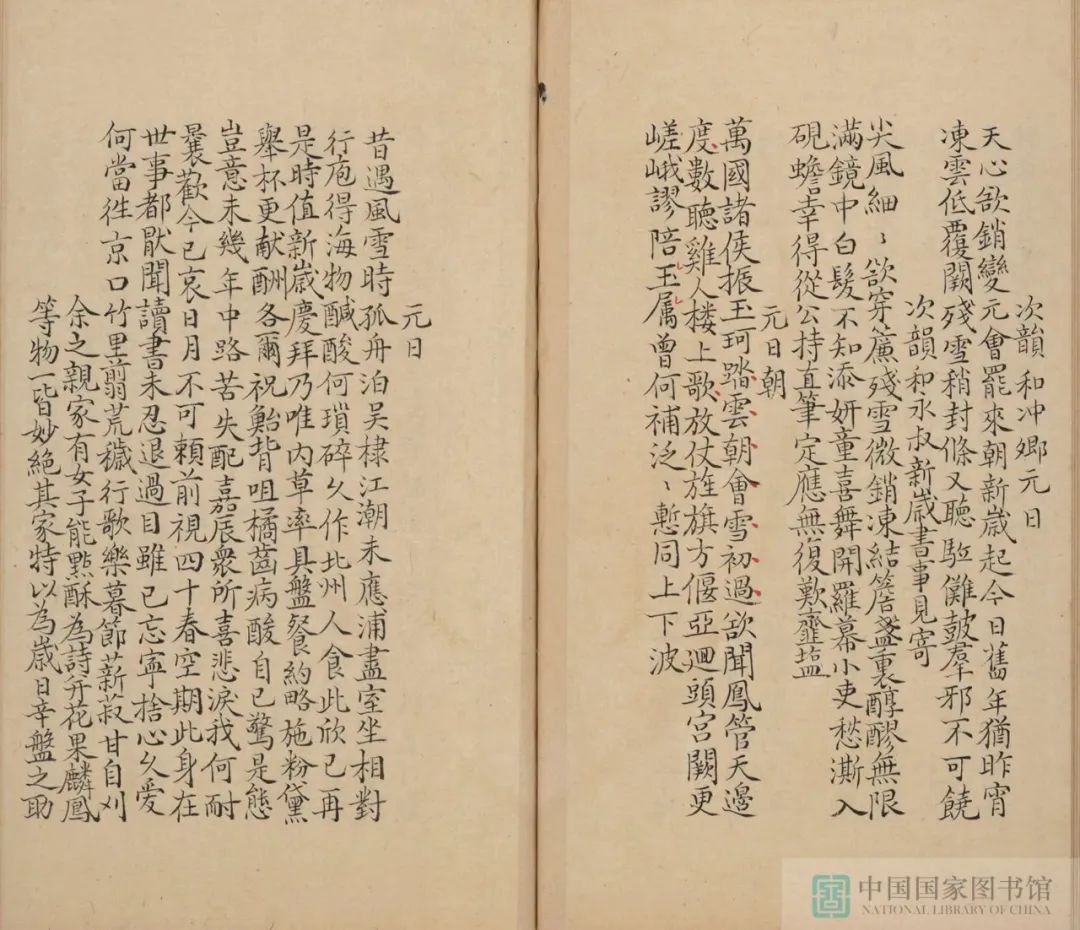 次韻和冲卿元日
天心欲銷變元會罷來朝新歲起今日舊年猶昨宵
凍雲低覆闕殘雪稍封條又聽駈儺鼓羣邪不可饒
次韻和永叔新歲書事見寄
尖風細〻欲穿簾殘雪微銷凍結簷盞裏醇醪無限
滿鏡中白髮不知添妍童喜舞開羅幕小吏愁澌入
硯蟾幸得從公持直筆定應無復歎虀塩
元日朝
萬國諸侯振玉珂踏雲朝會雪初過欲聞鳳管天邊
度數聽雞人楼上歌放仗旌旗方偃亞廻頭宮闕更
嵯峨謬陪玉属曾何補泛〻慙同上下波
元日
昔遇風雪時孤舟泊吴棣江潮未應浦盡室坐相對
行庖得海物醎酸何瑣碎久作北州人食此欣已再
是時值新歲慶拜乃唯内草率具盤餐約略施粉黛
舉杯更献酬各爾祝鮐背咀橘齒病酸自已驚是態
豈意未幾年中路苦失配嘉辰衆所喜悲淚我何耐
曩歡今已哀日月不可頼前視四十春空期此身在
世事都厭聞讀書未忍退過目雖已忘寧捨心久爱
何當徃京口竹里翦荒穢行歌樂暮節薪菽甘自刈
余之親家有女子能點酥為詩并花果麟鳳
等物一皆妙絶其家特以為歲日辛盤之助
中国国家图书馆
NATIONAL LIBRARY OF CHINA